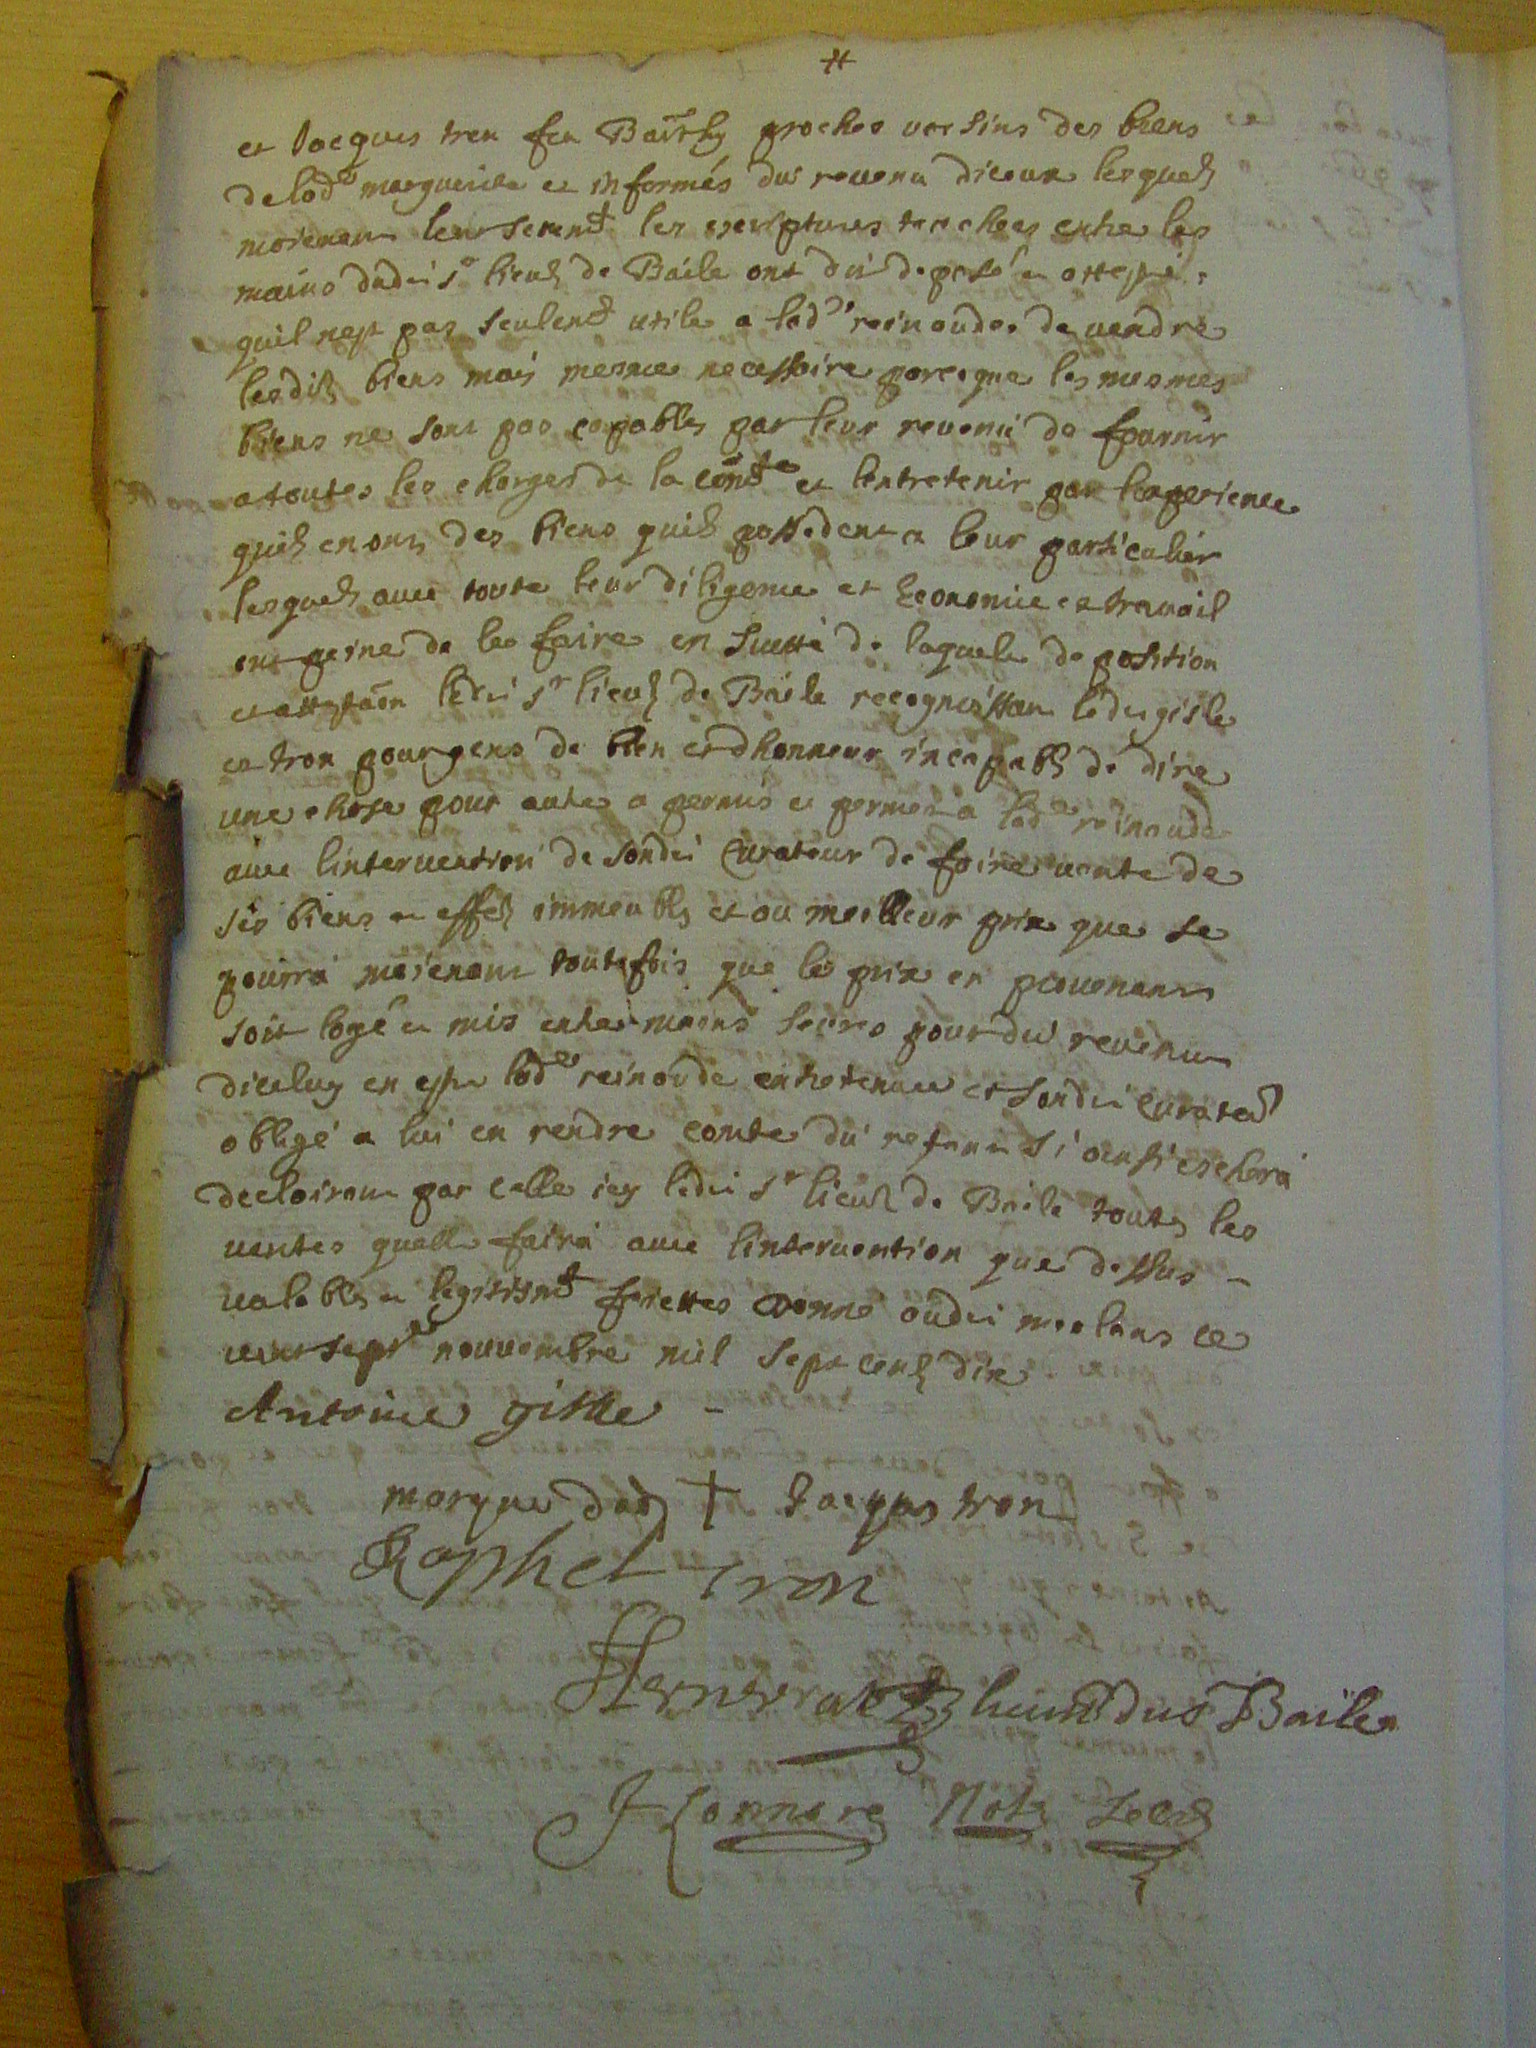 et Jacques tron feu Barthy proches voisins des biens
de lade marguerite et informés du revenu diceux lesquels
moienant leur seremt les escriptures touchees entre les
mains dudit Sr lieut de Baile ont dit deposé et attesté
quil nest pas seulemt utile a lade reinaude de vendre
lesdits biens mais mesme necessaire parceque les mesmes
biens ne sont pas capables par leur revenu de fournir
a toutes les charges de la comté et lentretenir par lexperience
quils en ont des biens quils possedent a leur particulier
lesquels avec toute leur diligence et Economie et travail
ont peine de le faire en suitte de laquele deposition
et attestaon ledit Sr lieut de Baile recognoissant ledit gisle
et tron pour gens de bien et dhonneur incapables de dire
une chose pour autre a permis et permet a lade reinaude
avec lintervention de sondit Curateur de faire vente de
ses biens et effets immeubles et au meilleur prix que se
pourra moienant toutefois que le prix en provenant
soit logé et mis entre mains seures pour du revenu
diceluy en estre lade reinaude entretenue et sondit Curateur
obligé a lui en rendre conte du restant si ainsi eschera
declairant par celle icy ledit Sr lieut de Baile toutes les
ventes quelle faira avec lintervention que dessus -
valables et legitimt faictes Donné audit meolans ce
vingt sept novembre mil sept cents dix
Antoine gisle -
marque dud + Jacques tron
Raphel tron
lieut dud Baile
Not